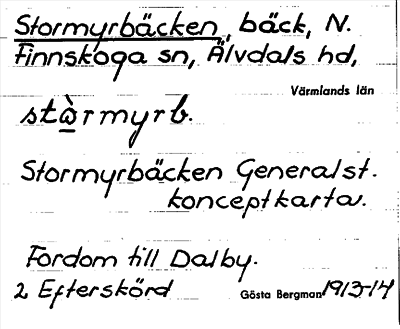 Stormyrbäcken, bäck, N.
Finnskoga sn, Älvdals hd,
Värmlands län
stò̲rmyrb.
Stormyrbäcken Generalst.
konceptkarta.
Fordom till Dalby.
2 Efterskörd Gösta Bergman 1913-14